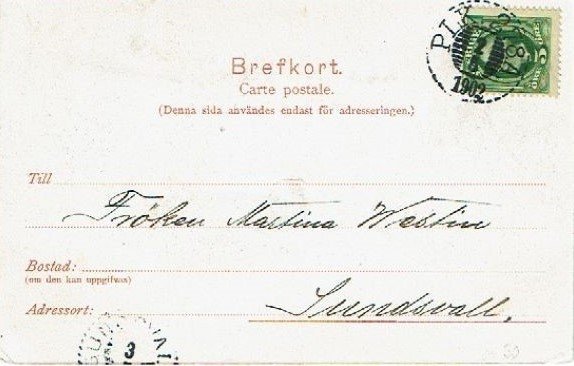 Brefkort.
Carte postale.
(Denna sida användes endast för adresseringen.)
1902
Till
Fröken Martina Westin
Bostad:
(om den kan uppgifvas)
Adressort:
Sundsvall.
3